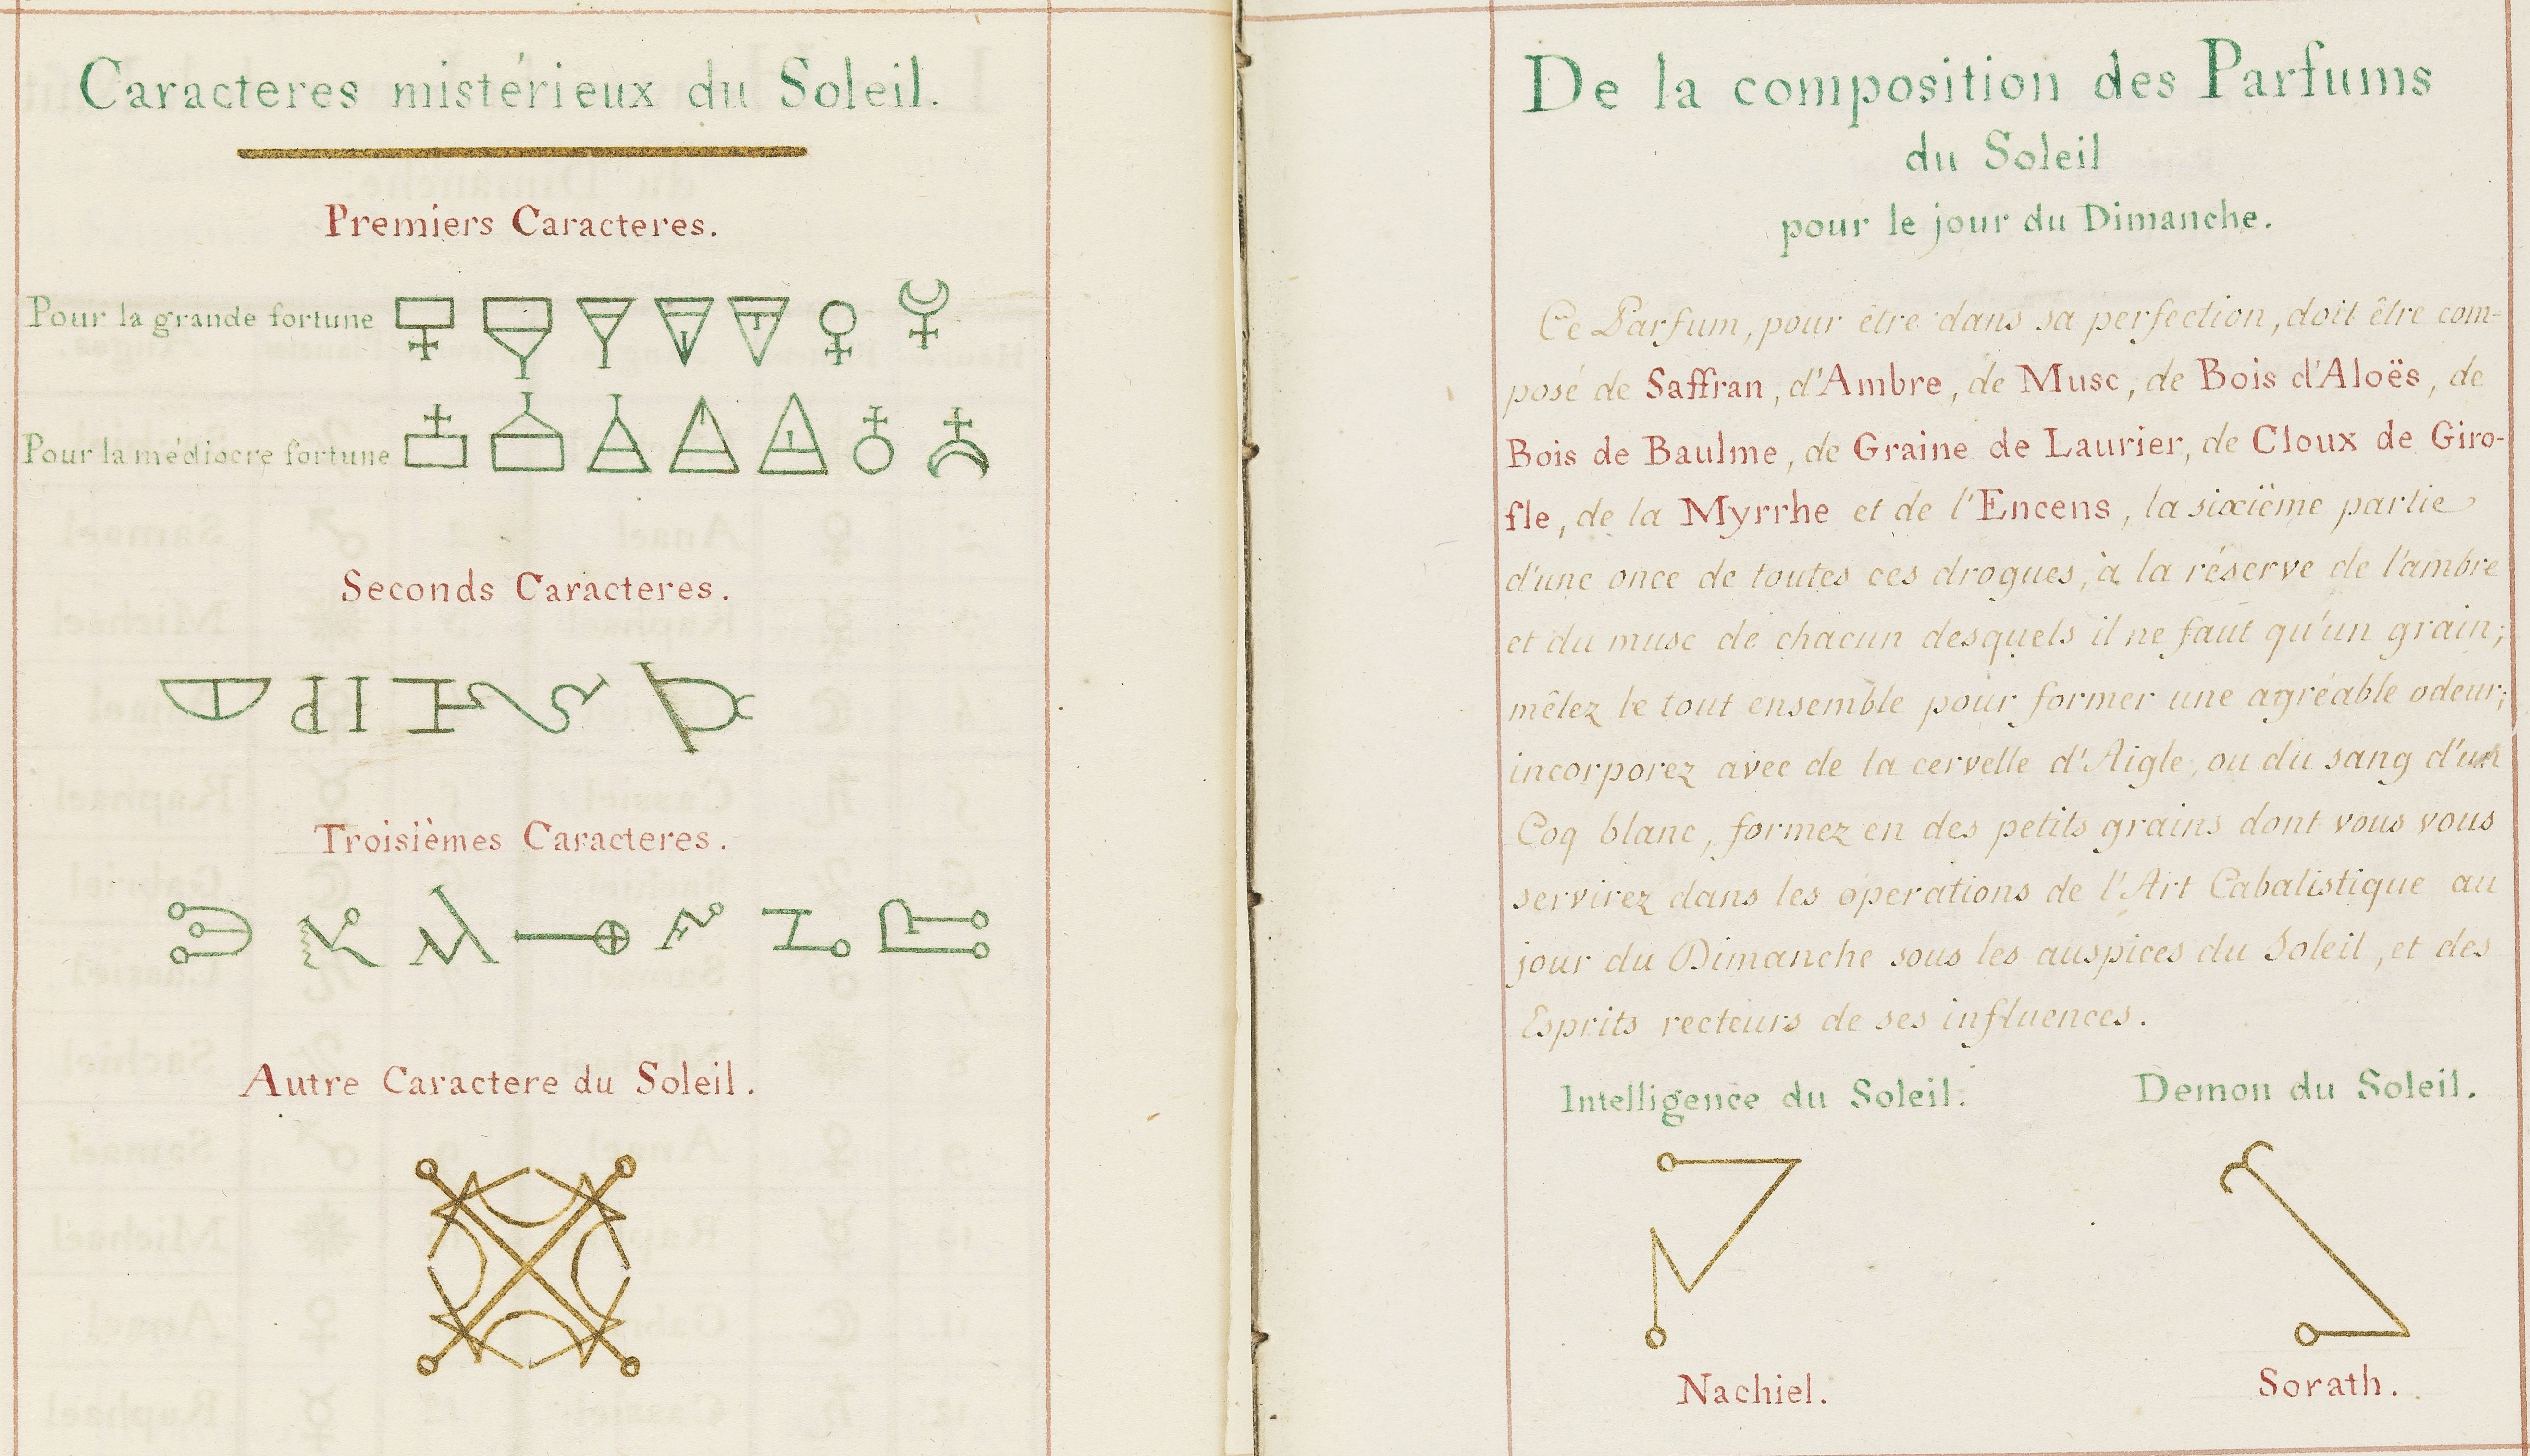 Caracteres mistérieux du Soleil.
Premiers Caracteres.
Pour la grande fortune
Pour la médiocre fortune
Seconds Caracteres.
Troisièmes Caracteres.
Autre Caractere du Soleil.
De la composition des Parfums
du Soleil
pour le jour du Dimanche.
Ce Parfum, pour être dans sa perfection, doit être com-
posé de Saffran, d'Ambre, de Musc, de Bois d'Aloës, de
Bois de Baulme, de Graine de Laurier, de Cloux de Giro-
fle, de la Myrrhe et de l'Encens, la sixiême partie
d'une once de toutes ces drogues, à la réserve de l'ambre
et du musc de chacun desquels il ne faut qu'un grain;
mêlez le tout ensemble pour former une agréable odeur;
incorporez avec de la cervelle d'Aigle, ou du sang d'un
Coq blanc, formez en des petits grains dont vous vous
servirez dans les operations de l'Art Cabalistique au
jour du Dimanche sous les auspices du Soleil, et des
Esprits recteurs de ses influences.
Intelligence du Soleil. Demon du Soleil.
Nachiel. Sorath.